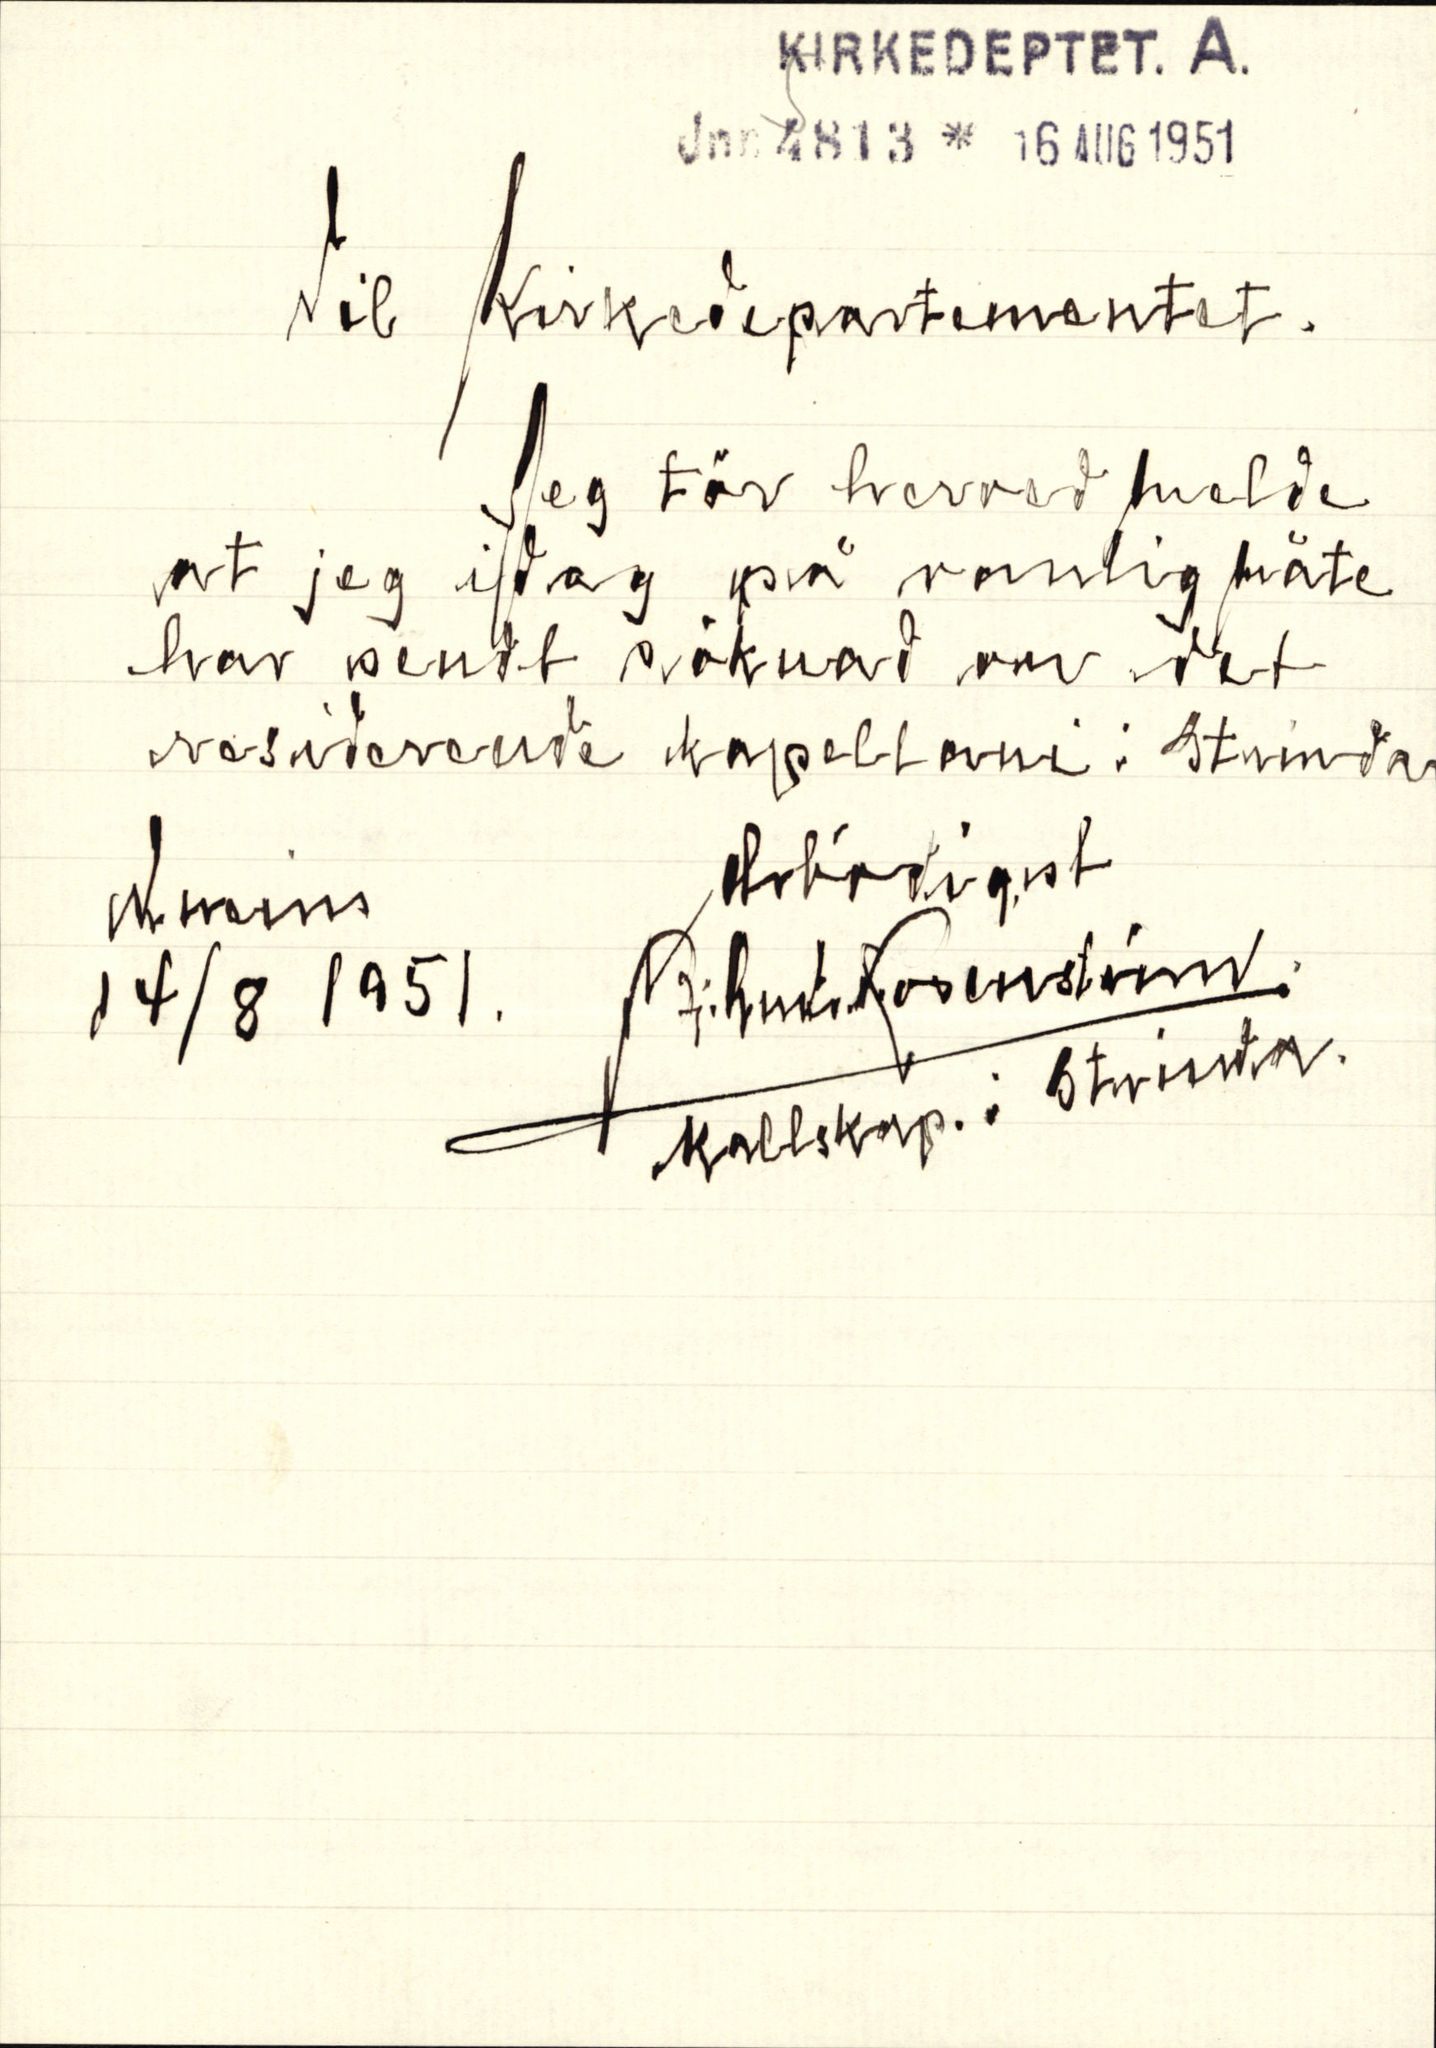 KIRKEDEPTET. A.
Jnr 4813 * 16 AUG 1951
Til Kirkedepartementet.
Jeg tör herved melde
at jeg idag på vanlig måte
har sendt söknad om det
residerende kapellani i Strinda
Ærbödigst
14/8 1951.
Rosenström.
Kallskap. i Strinda.